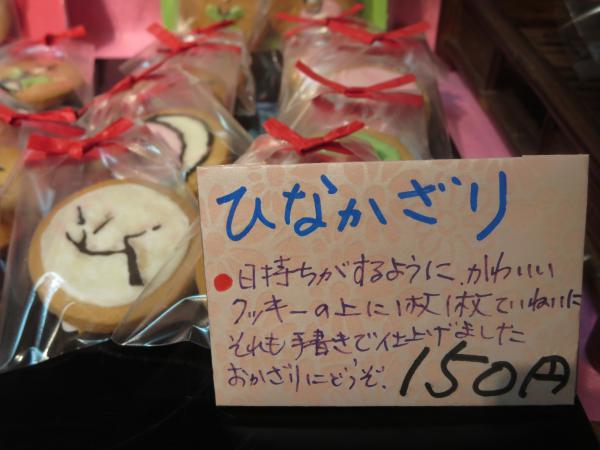 ひなかざり
●日持ちがするように、かわいい
クッキーの上に1枚1枚ていねいに
それも手書きで仕上げました
おかざりにどうぞ.
150円